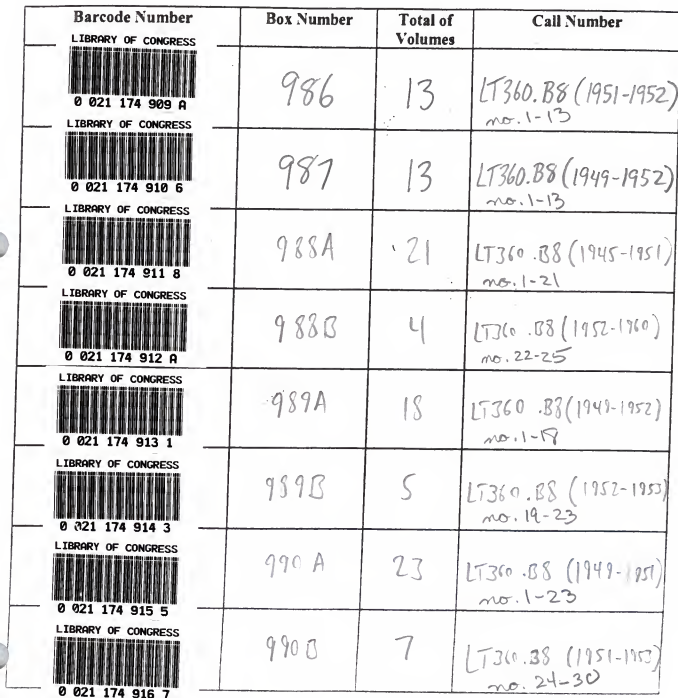 Barcode Number Box Number Total of Volumes Call Number
LIBRARY OF CONGRESS
0 021 174 909 A
986
13
LT360.B8 (1951-1952)
no. 1-13
LIBRARY OF CONGRESS
0 021 174 910 6
987
13
LT360.B8 (1949-1952)
no. 1-13
LIBRARY OF CONGRESS
0 021 174 911 8
988A
21
LT360 .B8 (1945-1951)
no. 1-21
LIBRARY OF CONGRESS
0 021 174 912 A
988B
4
LT360 .B8 (1952-1960)
no. 22-25
LIBRARY OF CONGRESS
0 021 174 913 1
989A
18
LT360 .B8 (1949-1952)
no. 1-18
LIBRARY OF CONGRESS
0 021 174 914 3
989B
5
LT360 .B8 (1952-1953)
no. 19-23
LIBRARY OF CONGRESS
0 021 174 915 5
990 A
23
LT360 .B8 (1949-1951)
no. 1-23
LIBRARY OF CONGRESS
0 021 174 916 7
990 B
7
LT360 .B8 (1951-1953)
no. 24-30